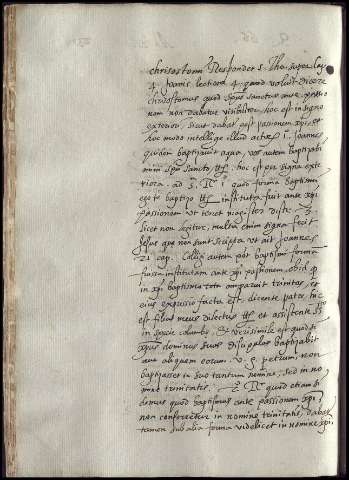 chrisostomi Respondet s. Tho. super cap.
4. Joannis lectione 4. quod voluit dicere
chrisostomus quod spus sanctus ante
non dabatur visibiliter, hoc est in signo
exteriori, sicut dabat post passionem xpi et
hoc modo intellige illud actor. i. Joannes
quidem baptizavit aqua, vos autem baptizabi
mini spu sancto, hoc est per signa exte
riora. ad quod forma baptismi
ego te baptizo instituta fuit ante xpi
passionem ut tenet magister dist. 3.
licet non legitur, multa enim signa fecit
Jesus que non sunt scripta ut ait Joannes
21 cap. Colligi autem pōt baptismi formā
fuisse institutam ante xpi passionem, ob id q
in xpi baptismo tota trinitas, et
eius expressio facta est dicente patre, hic
est filius meus dilectus et assistente spu
in specie columbe. Et verisimile est quod si
xpus dominus suos discipulos baptizabit
aut aliquem eorum v. g. petrum, non
baptizasset in suo tantum nomine, sed in no
mine trinitatis. quod etiam si
demus quod baptismus ante passionem xpi
non conferretur in nomine trinitatis, dabat
tamen sub alia forma videlicet in nomine xpi,